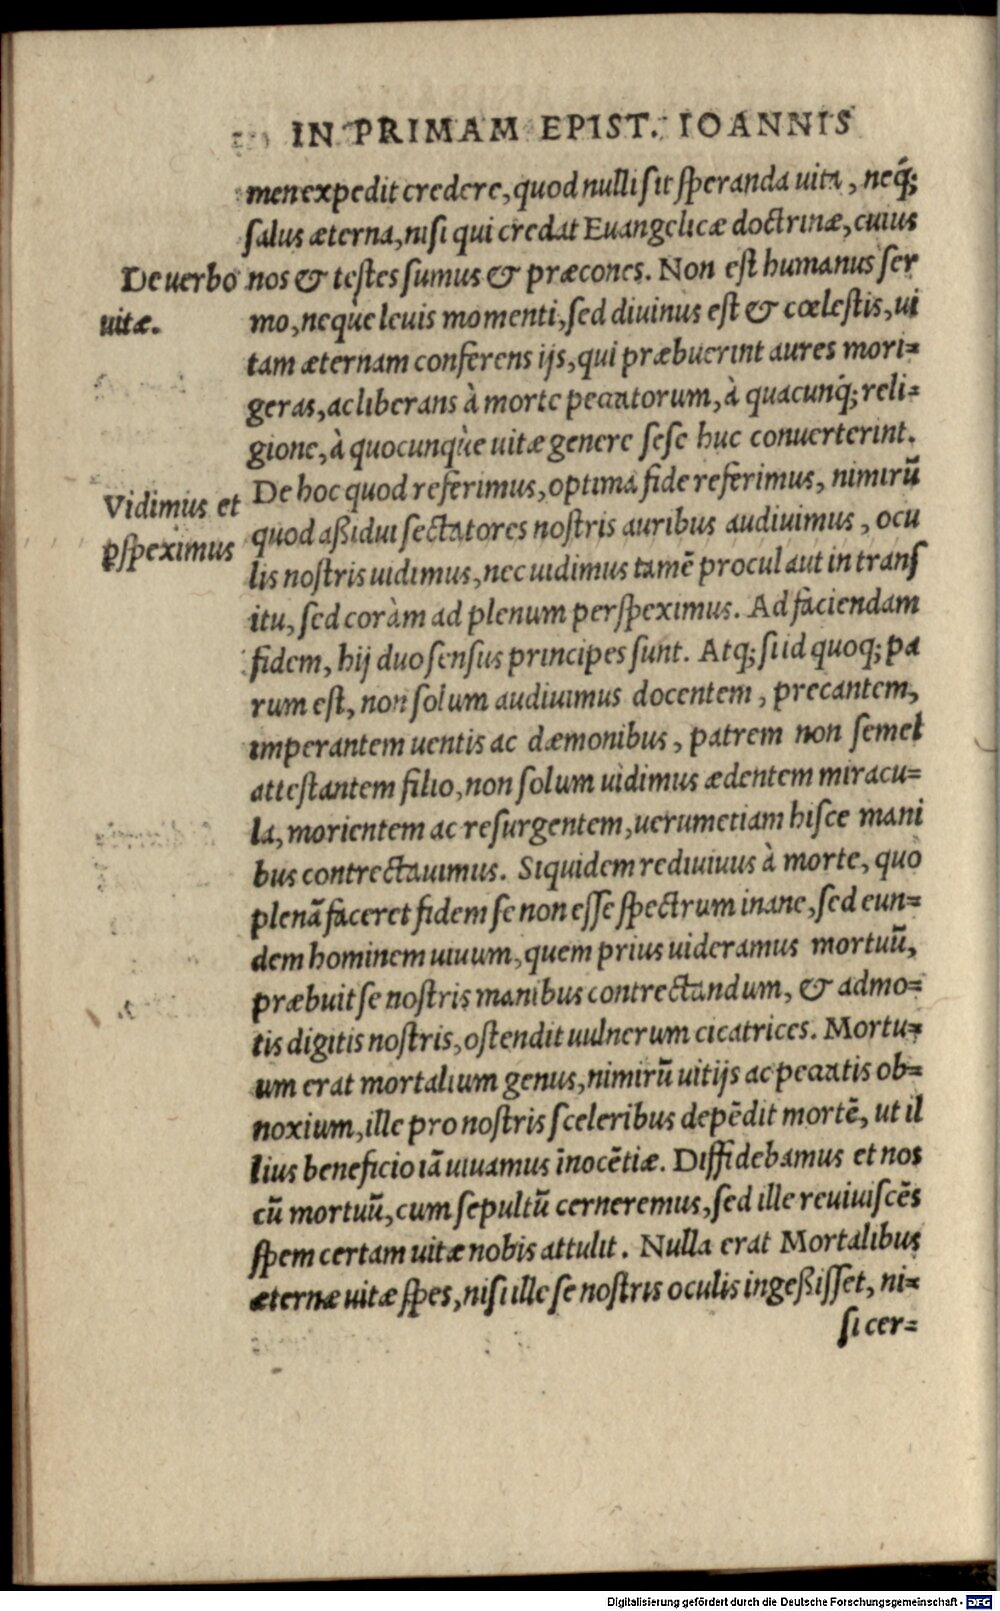 IN PRIMAM EPIST. IOANNIS
men expedit credere, quod nulli sit speranda uita, neq́;
salus æterna, nisi qui credat Euangelicæ doctrinæ, cuius
De uerbo
uitæ.
nos & testes sumus & præcones. Non est humanus ser
mo, neque leuis momenti, sed diuinus est & cœlestis, ui
tam æternam conferens ijs, qui præbuerint aures mori=
geras, ac liberans à morte peccatorum, à quacunq́; reli=
gione, à quocunq̀ue uitæ genere sese huc conuerterint.
Vidimus et
ꝑspeximus
De hoc quod referimus, optima fide referimus, nimirū
quod aßidui sectatores nostris auribus audiuimus, ocu
lis nostris uidimus, nec uidimus tamē procul aut in trans
itu, sed coràm ad plenum perspeximus. Ad faciendam
fidem, hij duo sensus principes sunt. Atq; si id quoq; pa
rum est, non solum audiuimus docentem, precantem,
imperantem uentis ac dæmonibus, patrem non semel
attestantem filio, non solum uidimus ædentem miracu=
la, morientem ac resurgentem, uerumetiam hisce mani
bus contrectauimus. Siquidem rediuiuus à morte, quo
plenā faceret fidem se non esse spectrum inane, sed eun=
dem hominem uiuum, quem prius uideramus mortuū,
præbuit se nostris manibus contrectandum, & admo=
tis digitis nostris, ostendit uulnerum cicatrices. Mortu=
um erat mortalium genus, nimirū uitijs ac peccatis ob=
noxium, ille pro nostris sceleribus depēdit mortē, ut il
lius beneficio iā uiuamus īnocētiæ. Diffidebamus et nos
cū mortuū, cum sepultū cerneremus, sed ille reuiuiscēs
spem certam uitæ nobis attulit. Nulla erat Mortalibus
æternæ uitæ spes, nisi ille se nostris oculis ingeßisset, ni=
si cer=
Digitalisierung gefördert durch die Deutsche Forschungsgemeinschaft - DFG